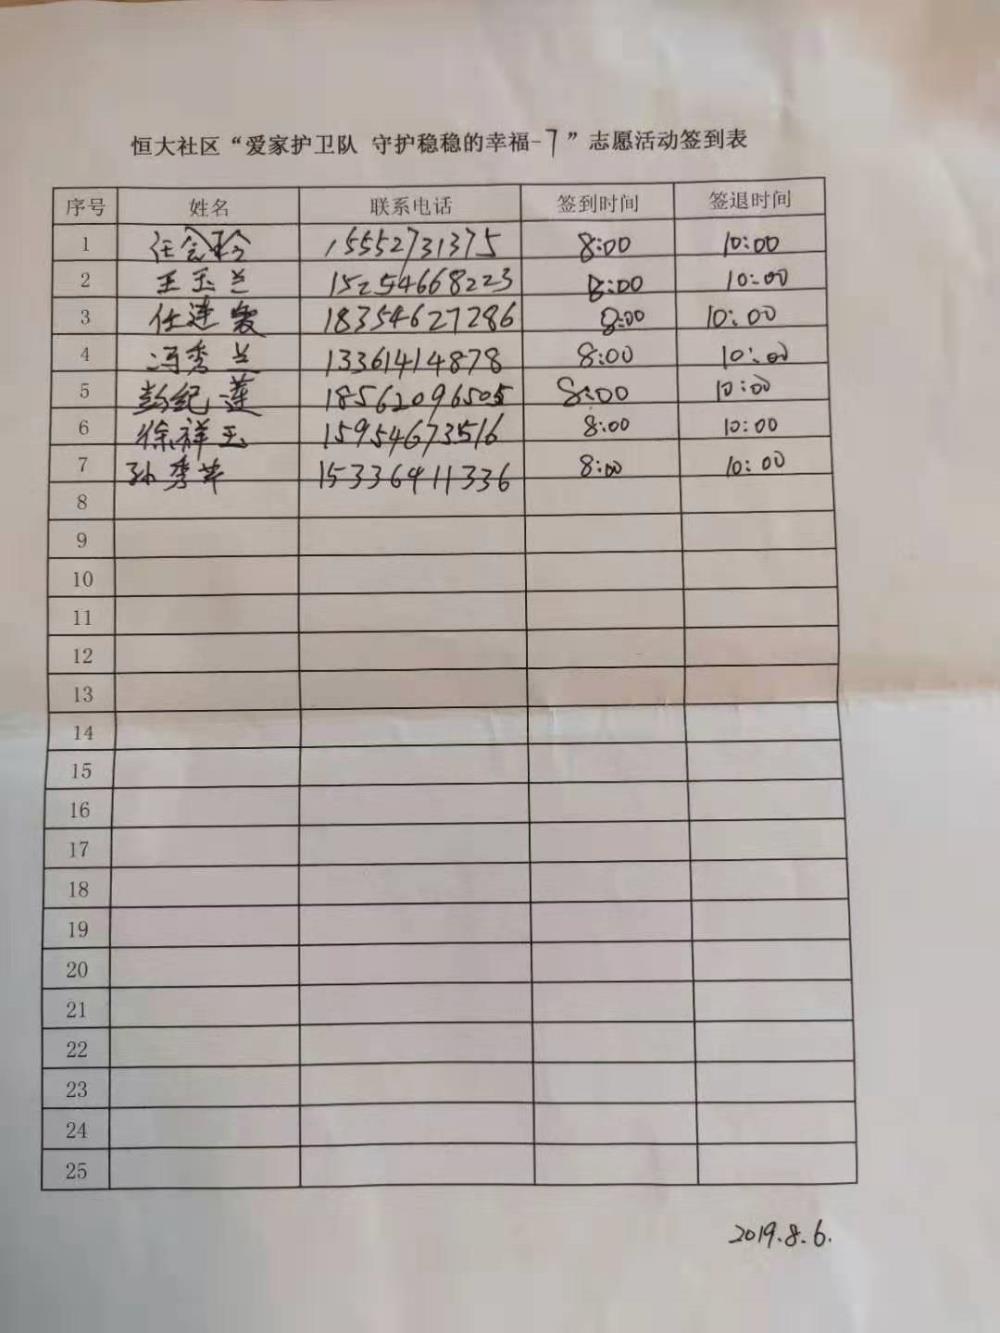 恒大社区“爱家护卫队 守护稳稳的幸福-7”志愿活动签到表
序号 姓名 联系电话 签到时间 签退时间
1 任会玲 15552731375 8:00 10:00
2 王玉兰 15254668223 8:00 10:00
3 任连 18354627286 8:00 10:00
4 冯秀兰 13361414878 8:00 10:00
5 彭纪莲 18562096505 8:00 10:00
6 徐祥玉 15954673516 8:00 10:00
7 孙秀 15336411336 8:00 10:00
8
9
10
11
12
13
14
15
16
17
18
19
20
21
22
23
24
25
2019.8.6.